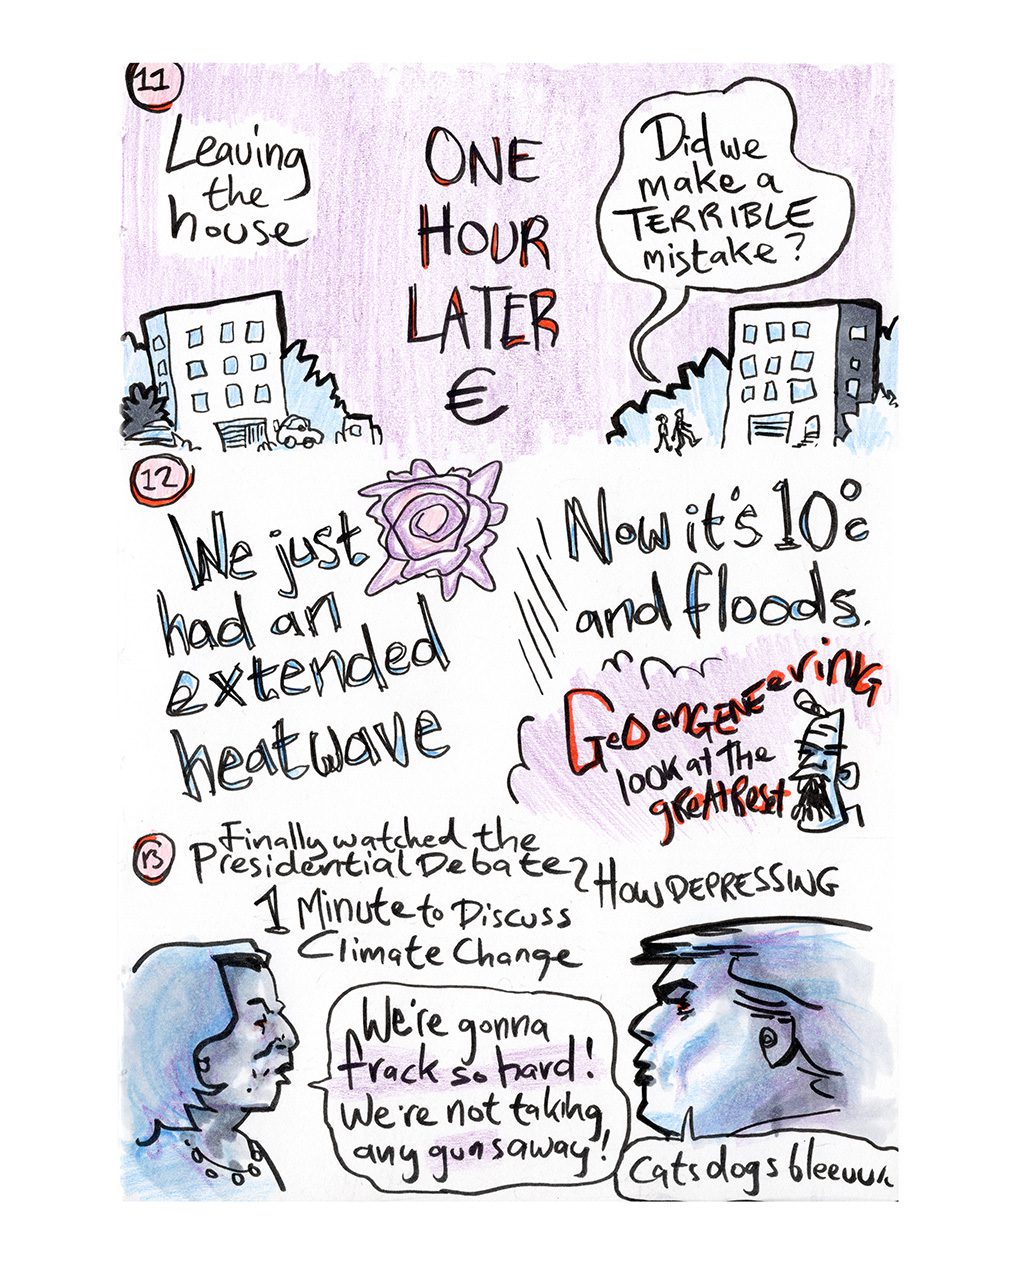 11
Leaving
the
house
ONE
HOUR
LATER
€
Did we
make a
TERRIBLE
mistake?
12
We just
had an
extended
heatwave
Now it's 10°c
and floods.
GeoenGENEeriNG
look at the
greAtReset
13
Finally watched the
Presidential Debate
1 Minute to Discuss
Climate Change
How DEPRESSING
We're gonna
frack so hard!
We're not taking
any guns away!
Cats dogs bleeuur